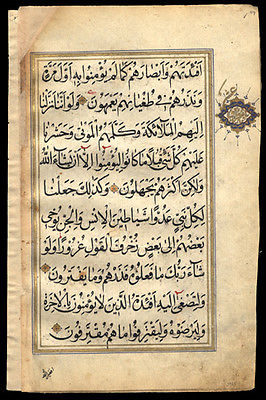 أفئدتهم وأبصارهم كما لم يؤمنوا به أول مرة
ونذرهم في طغيانهم يعمهون ولو أننا نزلنا
إليهم الملائكة وكلمهم الموتى وحشرنا
عليهم كل شيء قبلا ما كانوا ليؤمنوا إلا أن يشاء الله
ولكن أكثرهم يجهلون وكذلك جعلنا
لكل نبي عدوا شياطين الإنس والجن يوحي
بعضهم إلى بعض زخرف القول غرورا ولو
شاء ربك ما فعلوه فذرهم وما يفترون
ولتصغى إليه أفئدة الذين لا يؤمنون بالآخرة
وليرضوه وليقترفوا ما هم مقترفون